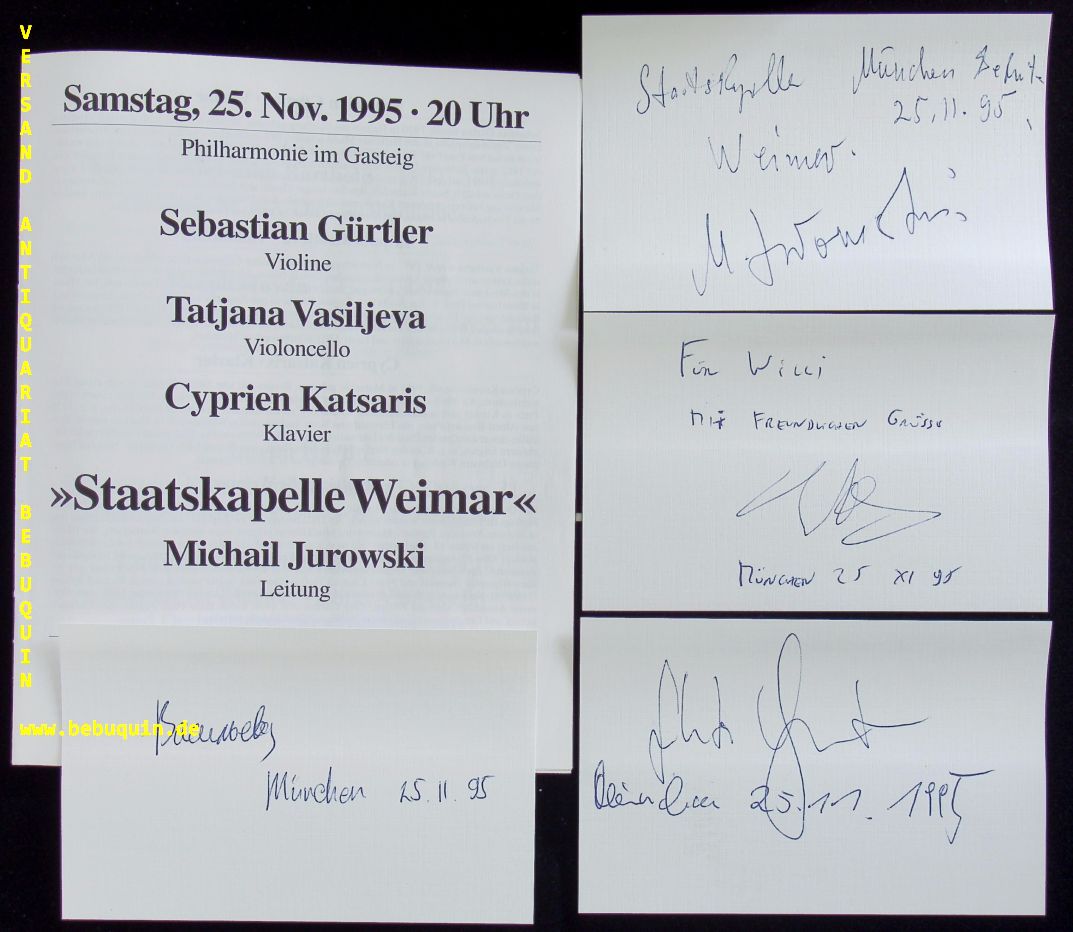 VERSAND ANTIQUARIAT BEBUQUIN
www.bebuquin.de
Samstag, 25. Nov. 1995 · 20 Uhr
Philharmonie im Gasteig
Sebastian Gürtler
Violine
Tatjana Vasiljeva
Violoncello
Cyprien Katsaris
Klavier
»Staatskapelle Weimar«
Michail Jurowski
Leitung
München 25.11.95
Staatskapelle
Weimar.
München
25.11.95,
M. Jurowski
Für Willi
MIT FREUNDLICHEN GRÜSSE
MÜNCHEN 25 XI 95
München 25.11.1995